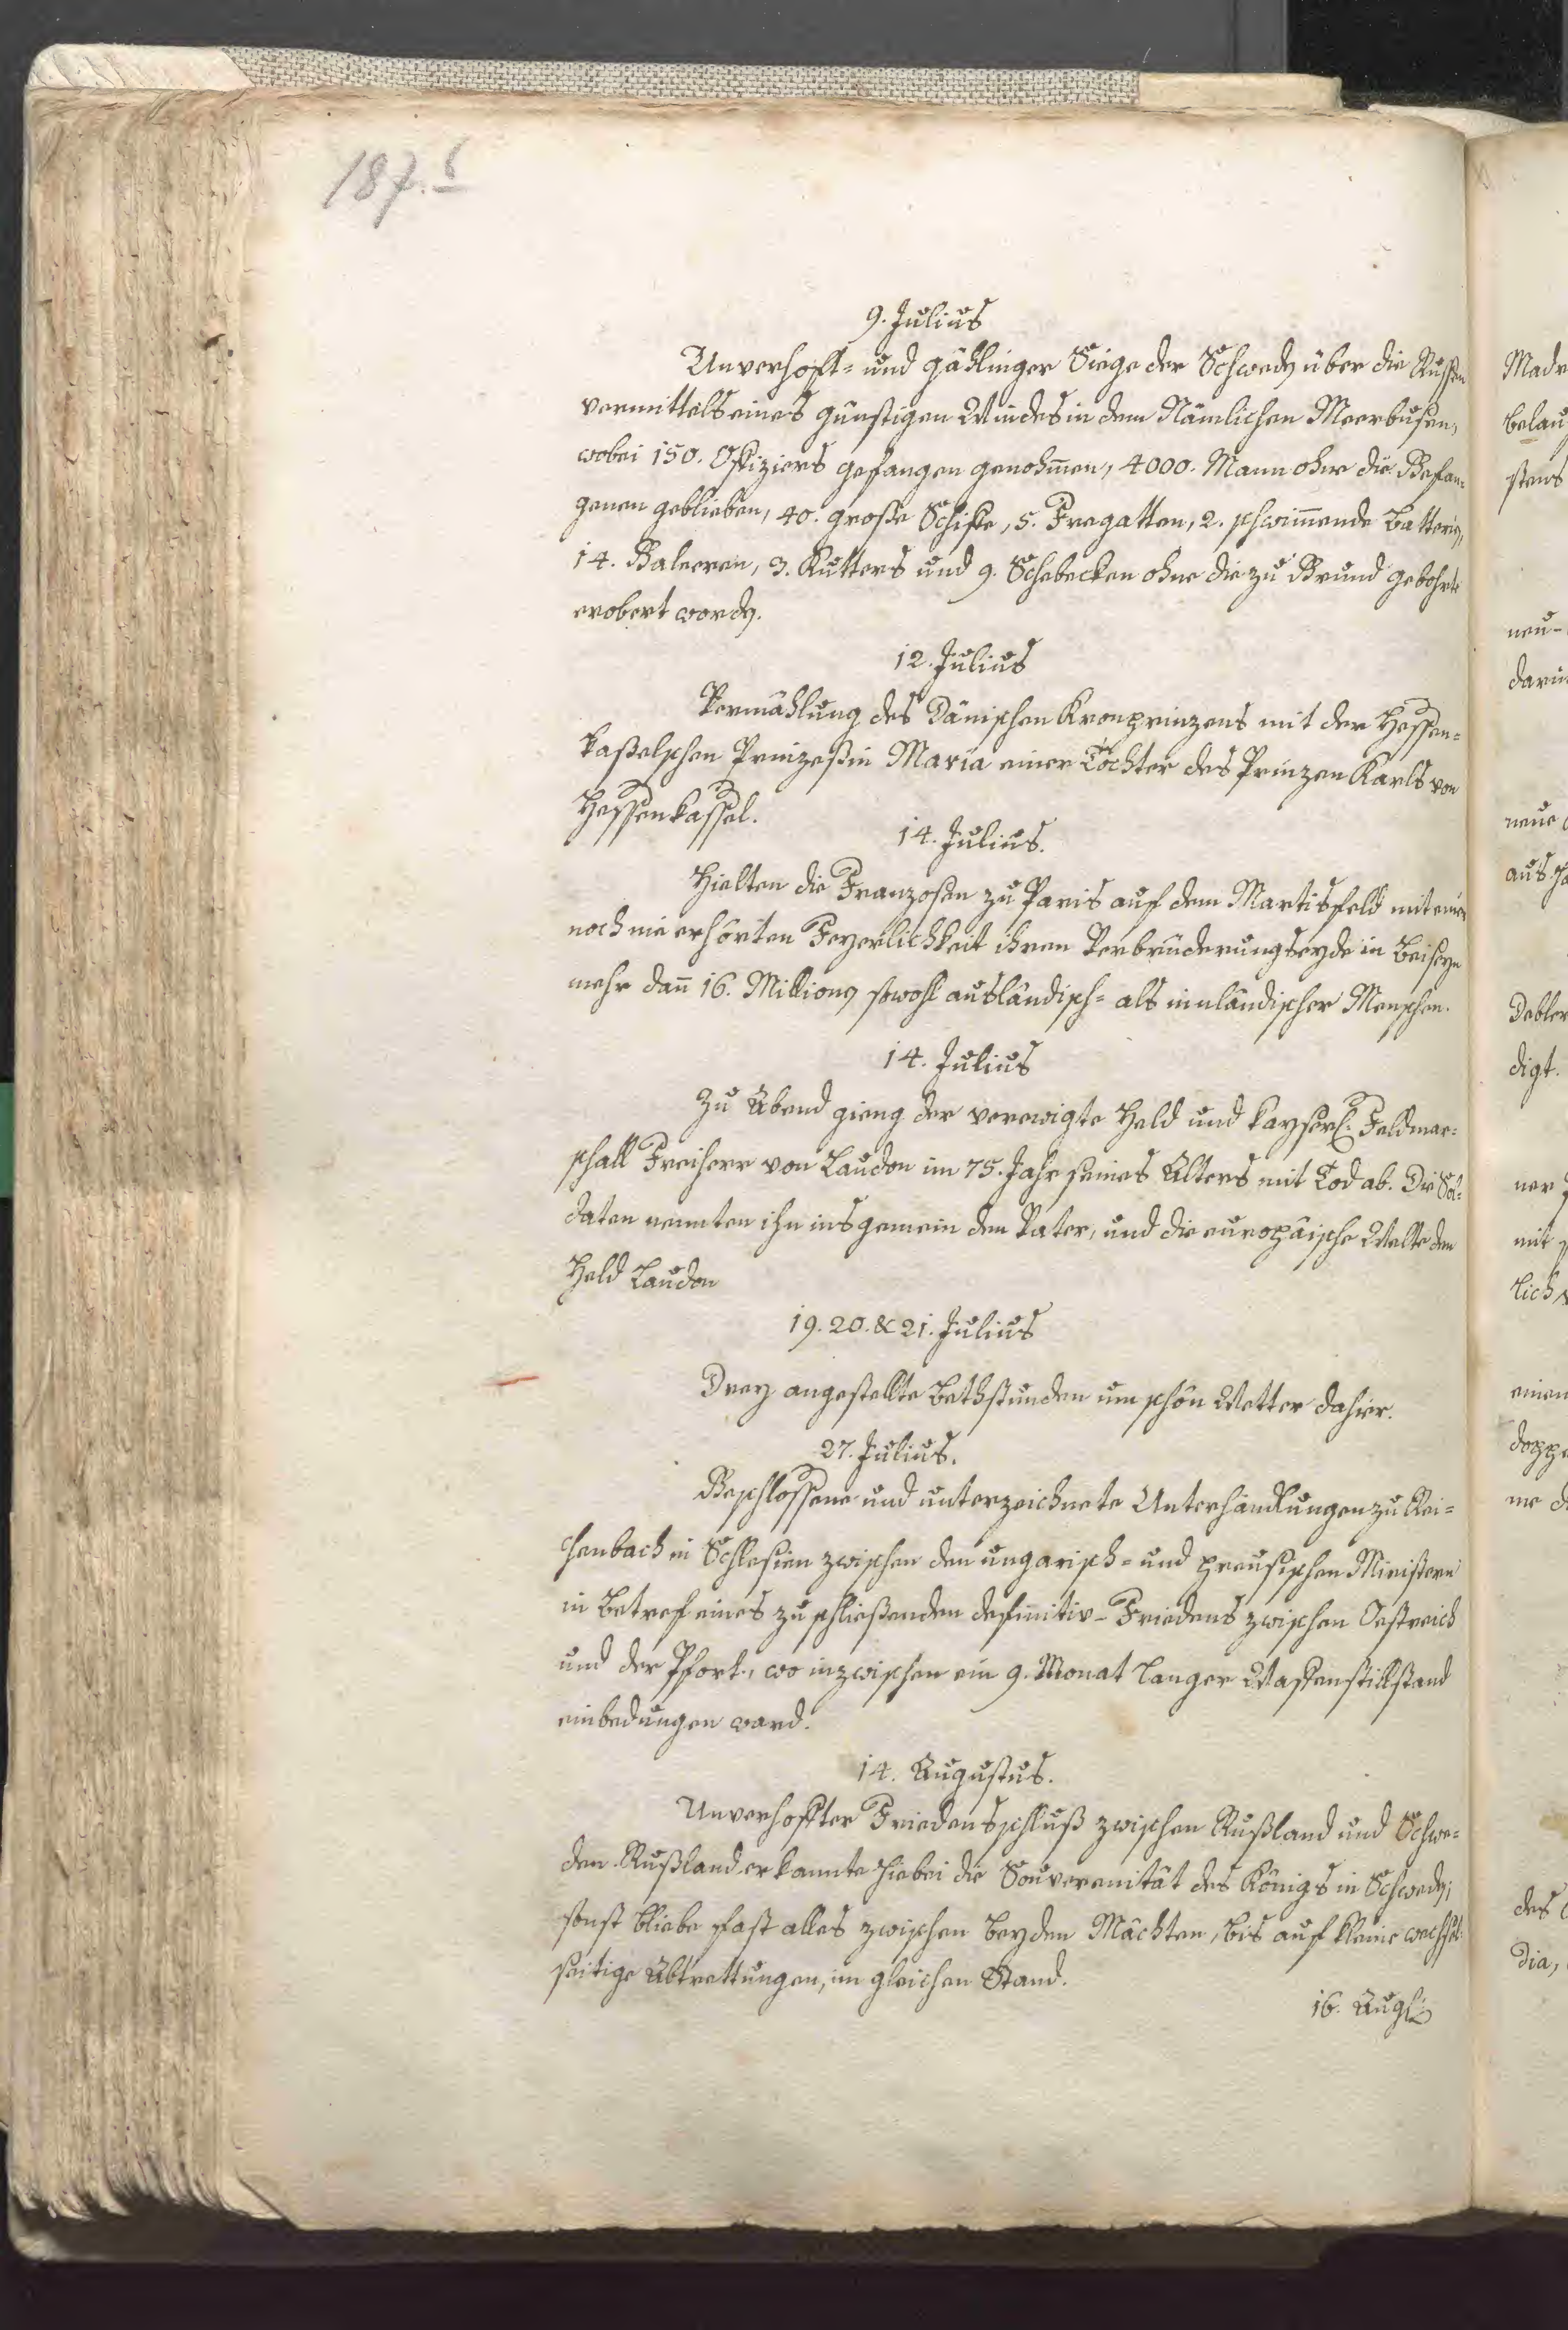 187.
9. Julius
Unverhoft= und gählinger Siege der Schwedẽ über die Russen
vermittels eines günstigen Windes in dem Nämlichen Meerbusen,
wobei 150. Offiziers gefangen genohm̄en, 4000. Mann ohne die Gefan=
genen geblieben, 40. große Schiffe, 5. Fregatten, 2. schwim̄ende Batteriẽ,
14. Galeeren, 3. Kutters und 9. Schebecken ohne die zu Grund gebohrte
erobert wordẽ.
12. Julius
Vermählung des Dänischen Kronprinzens mit der Hessen=
kaßelschen Prinzeßin Maria einer Tochter des Prinzen Karls von
Hessenkassel.
14. Julius.
Hielten die Franzosen zu Paris auf dem Martisfeld mit einer
noch nie erhörten Feyerlichkeit ihren Verbrüderungseyde in Beiseyn
mehr dañ 16. Millionẽ sowohl ausländisch= als innländischer Menschen.
14. Julius
Zu Abend gieng der verewigte Held und kayserl. Feldmar=
schall Freiherr von Laudon im 75. Jahr seines Alters mit Tod ab. Die Sol=
daten nennten ihn insgemein den Vater, und die europäische Welte den
Held Laudon
19. 20. & 21. Julius
Drey angestellte Bethstunden um schön Wetter dahier.
27. Julius.
Beschlossene und unterzeichnete Unterhandlungen zu Rei=
chenbach in Schlesien zwischen den ungarisch= und preusischen Ministern
in Betref eines zu schließenden definitiv=Friedens zwischen Oestreich
und der Pfort., wo inzwischen ein 9. Monat langer Waffenstillstand
einbedungen ward.
14. Augustus.
Unverhoffter Friedensschluß zwischen Rußland und Schwe=
den. Rußland erkannte hiebei die Souverenität des Königs in Schwedẽ;
sonst bliebe fast alles zwischen beyden Mächten, bis auf kleine wechsel=
seitige Abtrettungen, im gleichen Stand.
16. Aug
Madr
belau
stens
neu=
darü
neue
aus
Debler
digt.
ner
mit
lich
einen
doppe
me
des
dia,